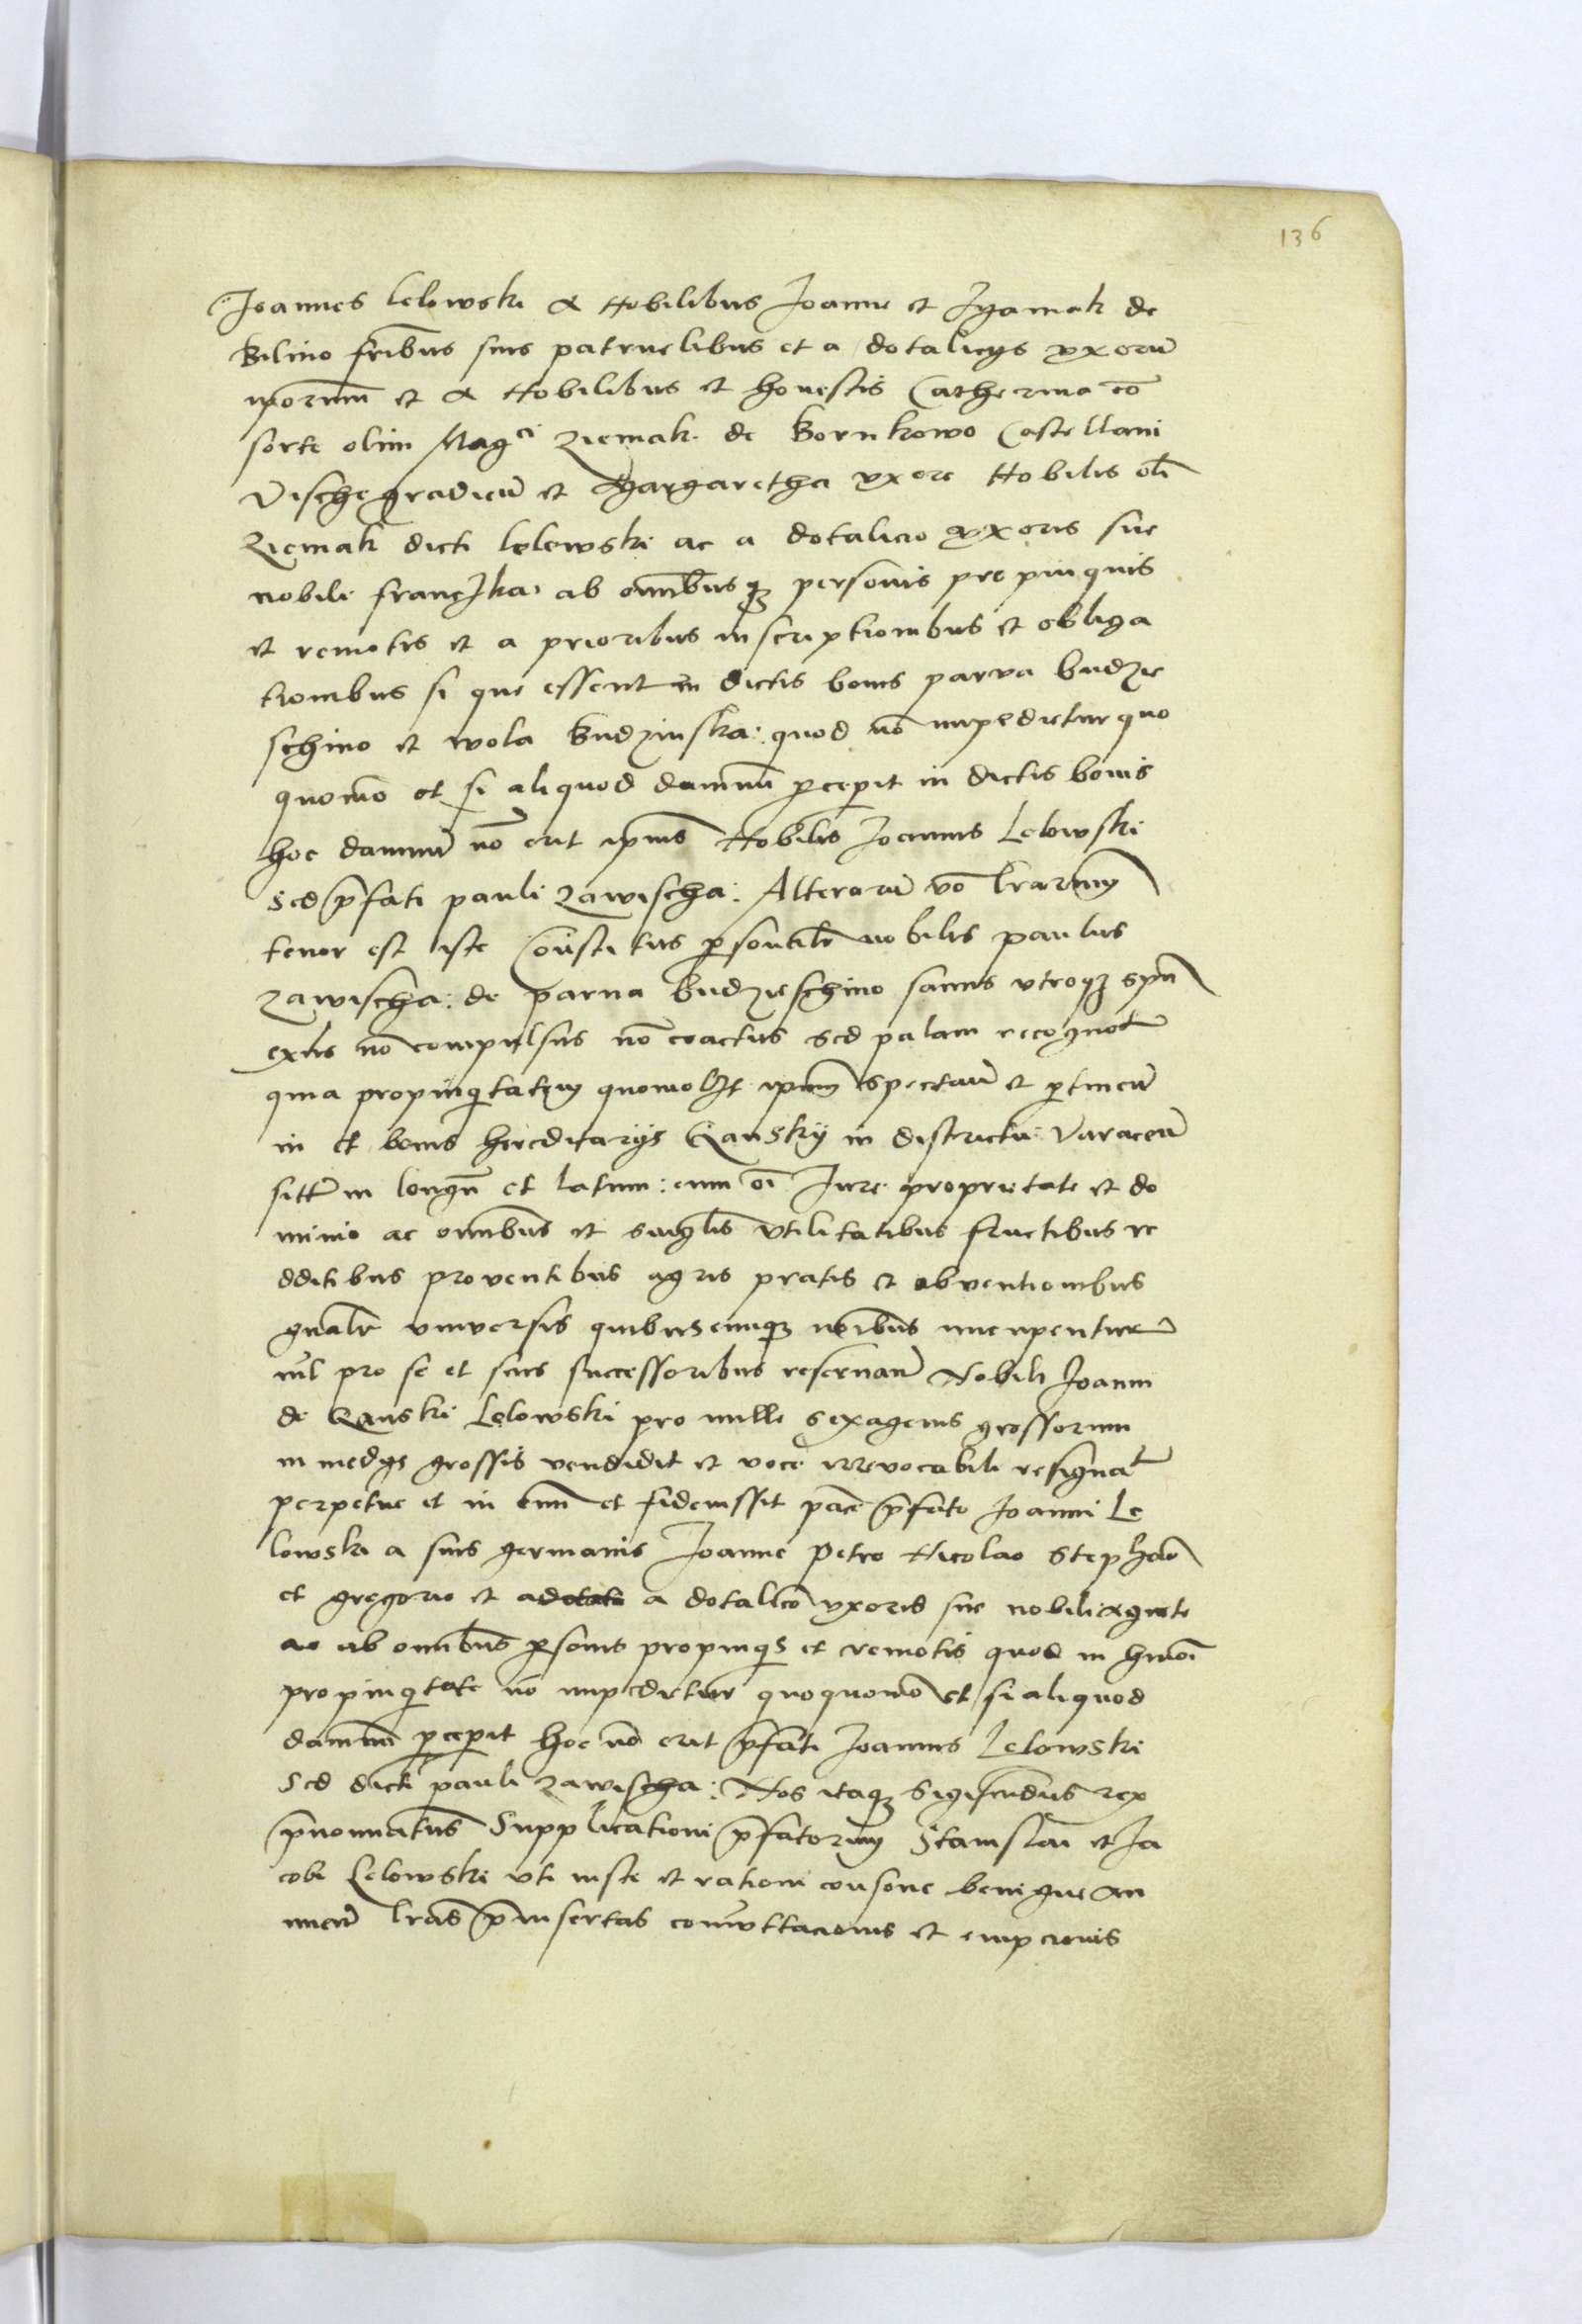 136
Joannes Lelowski a Nobilibus Joanne et Zyamak de
Bilino frībus suis patruelibus et a dotalicys vxorū
ip̄orum et a Nobilibus et honestis Catherina cō
sorte olim Magci Ziemak de Bornkowo Castellani
Vischegradieñ et Margaretha vxore Nobilis olī
Ziemak dicti Lelowski ac a dotalicio vxoris sue
nobili ab om̄ibusqȝ personis propinquis
et remotis et a prioribus inscriptionibus et obliga
tionibus si que essent in dictis bonis parva budzie
schino et wola Budzinska: quod nō impedietur quo
quomō et si aliquod damnū ꝑcepit in dictis bonis
hoc damnū nō erit ip̄ius Nobilis Joannis Lelowski
sed p̄fati pauli Zawischa: Alterarū vō lrārum
tenor est iste Cōnstitutus ꝑsonalr̄ nobilis paulus
Zawischa: de parva budzieschino sanus vtroqȝ
exn̄s nō compulsus nō coactus sed palam recognovt
quia propinqitatem quomolȝt ip̄um spectañ et ꝑtineñ
in et bonis hereditarijs in districtu
sitt in longū et latum: cum oī Jure proprietate et do
minio ac om̄ibus et singlis vtilitatibus fructibus re
dditibus proventibus agris pratis et obventionibus
gnālr̄ vniversis quibuscumqȝ noībus nuncupentur
nīl pro se et suis successoribus reservañ Nobili Joanni
de Lelowski pro mille sexagenis grossorum
in medys grossis vendidit et voce irrevocabili resignavt
perpetue et in evū et fideiussit p̄fato Joanni Le
lowski a suis germanis Joanne Petro Nicolao Stephāo
et gregorio et a dotalicō vxoris sue nobili agnete
ac ab om̄ibus ꝑsonis propinqis et remotis quod in hm̄oi
propinqitate nō impedietur quoquomō et si aliquod
damnū ꝑcepit hoc nō erit p̄fati Joannis Lelowski
Sed dicti pauli Zawischa: Nos itaqȝ Sigismūdus rex
p̄nominatus Supplicationi p̄fatorum Stanislai et Ja
cobi Lelowski vti iuste et rationi consone benigne an
nueñ lrās p̄insertas et empcionis